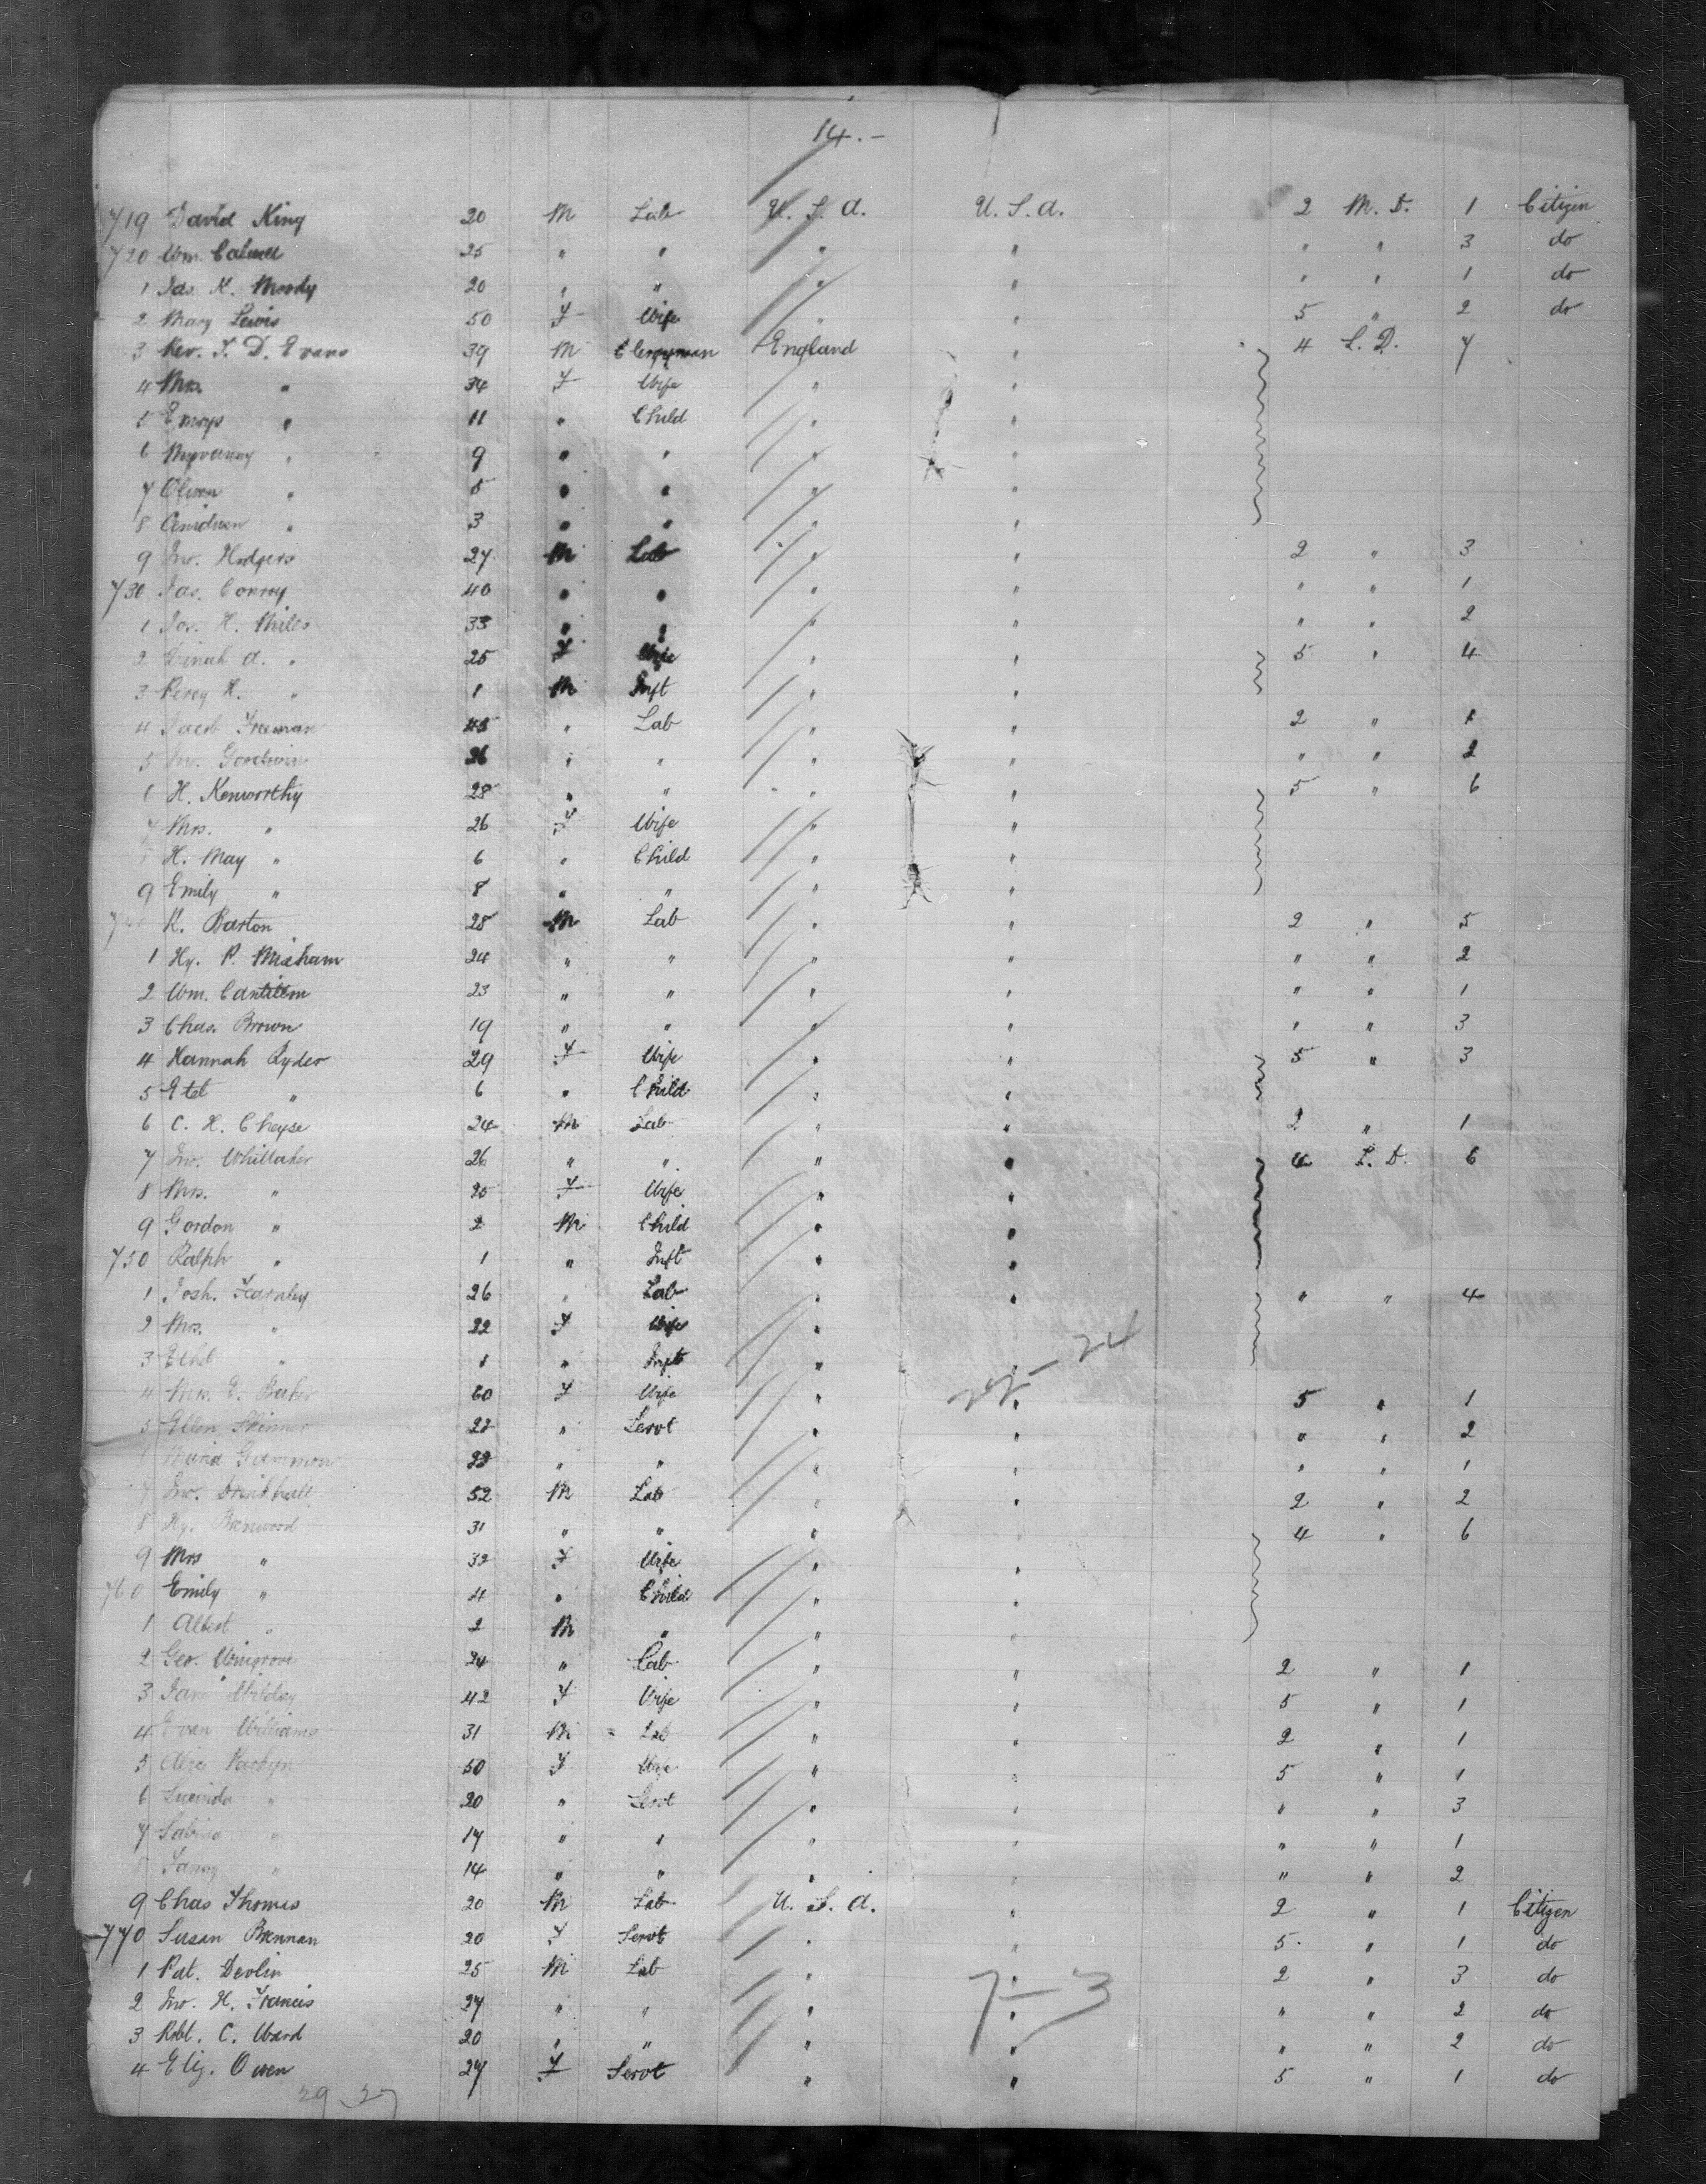 14.-
719 David King 20 M Lab U. S. A. U. S. A. 2 M. D. 1 Citizen
720 Wm. Calwell 25 " " " " " " 3 do
1 Jas. H. Moody 20 " " " " " " 1 do
2 Mary Lewis 50 F Wife " " 5 " 2 do
3 Rev. T. D. Evans 39 M Clergyman England " 4 L. D. 7
4 Mrs. " 34 F Wife " "
5 Emrys " 11 " Child " "
6 Myvanwy " 9 " " " "
7 Olwen " 5 " " " "
8 " 3 " " " "
9 Jno. Hodgers 27 M Lab " " 2 " 3
730 Jas. Conroy 40 " " " " " " 1
1 Jos. H. Mills 33 " " " " " " 2
2 Dinah A. " 25 F Wife " " 5 " 4
3 Percy H. " 1 M Inft " "
4 Jacob Freeman 45 " Lab " " 2 " 1
5 Jno. Goodwin 26 " " " " " " 2
6 H. Kenworthy 28 " " " " 5 " 6
7 Mrs. " 26 F Wife " "
8 H. May " 6 " Child " "
9 Emily " 8 " " " "
740 H. Barton 25 M Lab " " 2 " 5
1 Hy. P. 24 " " " " " " 2
2 Wm. 23 " " " " " " 1
3 Chas. Brown 19 " " " " " " 3
4 Hannah Ryder 29 F Wife " " 5 " 3
5 Etel " 6 " Child " "
6 C. H. Cheyse 24 M Lab " " 2 " 1
7 Jno. Whittaker 26 " " " " 4 L. D. 6
8 Mrs. " 25 F Wife " "
9 Gordon " 2 M Child " "
750 Ralph " 1 " Inft " "
1 Josh. Fearnley 26 " Lab " " " " 4
2 Mrs. " 22 F Wife " "
3 Ethel " 1 " Inft " "
24
4 Mrs. E. Baker 60 F Wife " " 5 " 1
5 Ellen Skinner 22 " Servt " " " " 2
6 Maria Gammon 22 " " " " " " 1
7 Jno. Drinkhall 52 M Lab " " 2 " 2
8 Hy. 31 " " " " 4 " 6
9 Mrs " 32 F Wife " "
760 Emily " 4 " Child " "
1 Albert " 2 M " " "
2 Geo. Wingrove 24 " Lab " " 2 " 1
3 42 F Wife " " 5 " 1
4 Evan Williams 31 M Lab " " 2 " 1
5 Alice 50 F Wife " " 5 " 1
6 Lucinda " 20 " Servt " " " " 3
7 Sabina " 17 " " " " " " 1
8 Fanny " 14 " " " " " " 2
9 Chas Thomas 20 M Lab U. S. A. " 2 " 1 Citizen
770 Susan Brennan 20 F Servt " " 5 " 1 do
1 Pat. Devlin 25 M Lab " " 2 " 3 do
7-3
2 Jno. H. Francis 27 " " " " " " 2 do
3 Robt. C. Ward 20 " " " " " " 2 do
4 Eliz. Owen 27 F Servt " " 5 " 1 do
29-27